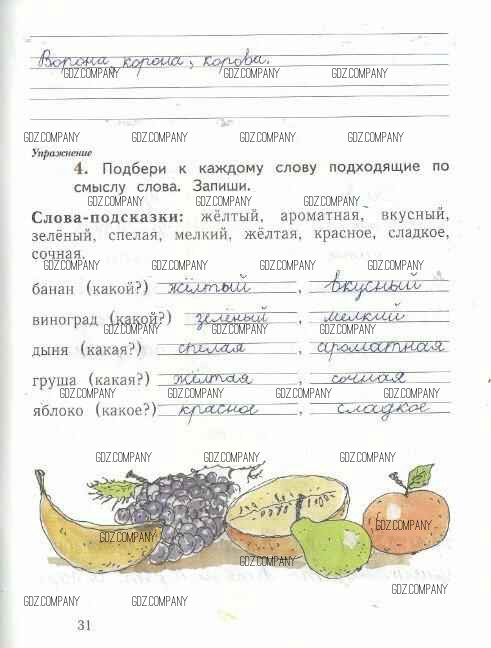 Ворона, корона, корова.
GDZ.COMPANY GDZ.COMPANY GDZ.COMPANY
GDZ.COMPANY GDZ.COMPANY GDZ.COMPANY GDZ.COMPANY
Упражнение
4. Подбери к каждому слову подходящие по
смыслу слова. Запиши.
GDZ.COMPANY GDZ.COMPANY GDZ.COMPANY
Слова-подсказки: жёлтый, ароматная, вкусный,
зелёный, спелая, мелкий, жёлтая, красное, сладкое,
сочная.
GDZ.COMPANY GDZ.COMPANY GDZ.COMPANY GDZ.COMPANY
банан (какой?) жёлтый, вкусный
виноград (какой?) зелёный, мелкий
GDZ.COMPANY GDZ.COMPANY GDZ.COMPANY
дыня (какая?) спелая, ароматная
груша (какая?) жёлтая, сочная
GDZ.COMPANY GDZ.COMPANY GDZ.COMPANY
яблоко (какое?) красное, сладкое
GDZ.COMPANY GDZ.COMPANY GDZ.COMPANY
GDZ.COMPANY GDZ.COMPANY GDZ.COMPANY
GDZ.COMPANY GDZ.COMPANY GDZ.COMPANY
GDZ.COMPANY GDZ.COMPANY GDZ.COMPANY GDZ.COMPANY
31